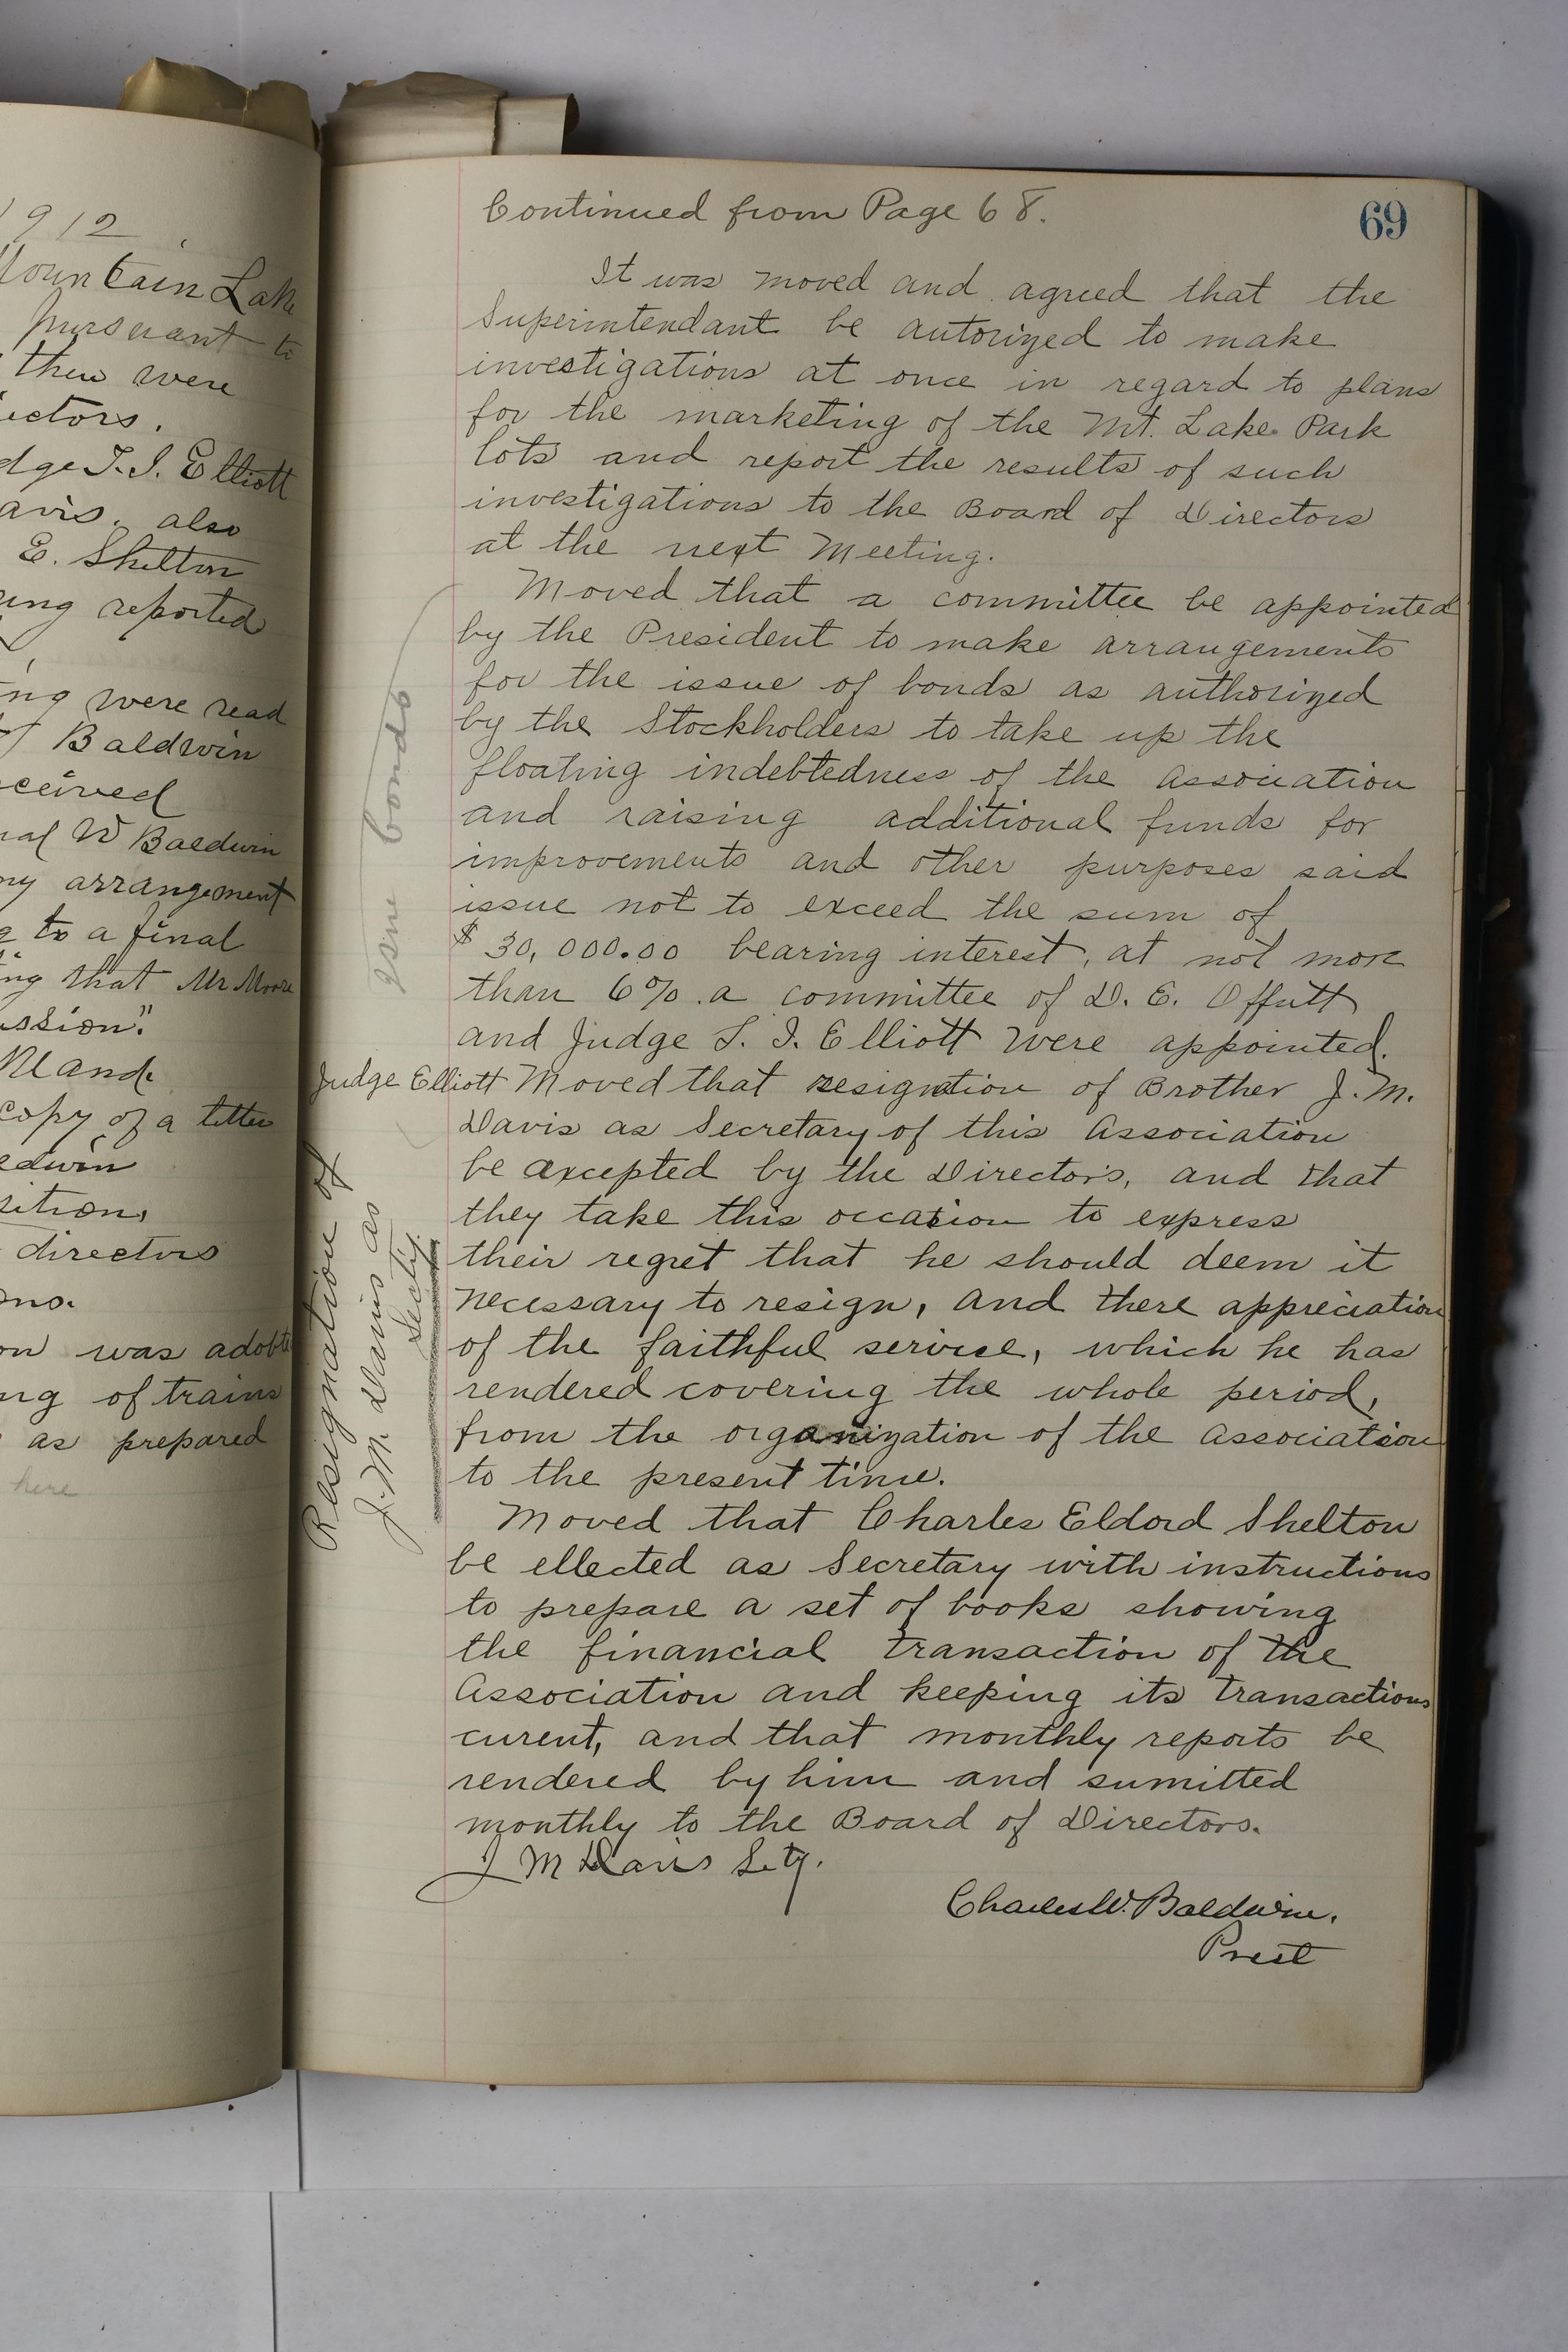 1912
Mountain Lake
pursuant to
there were
ectors.
dge T. I. Elliott
avis. also
E. Shelton
ing reported
ing were read
Baldwin
ceived
W Baldwin
ny arrangement
to a final
ing that Mr Moore
ssion."
copy of a letter
edwin
sition,
directors
ons.
on was adobt
ng of trains
as prepared
here
69
Continued from Page 68.
It was moved and agreed that the
Superintendant be autorized to make
investigations at once in regard to plans
for the marketing of the Mt. Lake Park
lots and report the results of such
investigations to the Board of Directors
at the next Meeting.
Moved that a committee be appointed
by the President to make arrangements
for the issue of bonds as authorized
by the Stockholders to take up the
floating indebtedness of the Association
and raising additional funds for
improvements and other purposes said
issue not to exceed the sum of
$30,000.00 bearing interest, at not more
than 6% a committee of D. E. Offutt
and Judge T. I. Elliott were appointed.
Judge Elliott Moved that resignation of Brother J. M.
Davis as Secretary of this Association
be axcepted by the Directors, and that
they take this occasion to express
their regret that he should deem it
necessary to resign, and there appreciation
of the faithful service, which he has
rendered covering the whole period,
from the organization of the Association
to the present time.
Moved that Charles Eldord Shelton
be ellected as Secretary with instructions
to prepare a set of books showing
the financial transaction of the
Association and keeping its transactions
curent, and that monthly reports be
rendered by him and sumitted
monthly to the Board of Directors.
J M Davis Sety.
Charles W. Baldwin.
Prest
Issue bonds
Resignation of
J. M. Davis as
Secty.